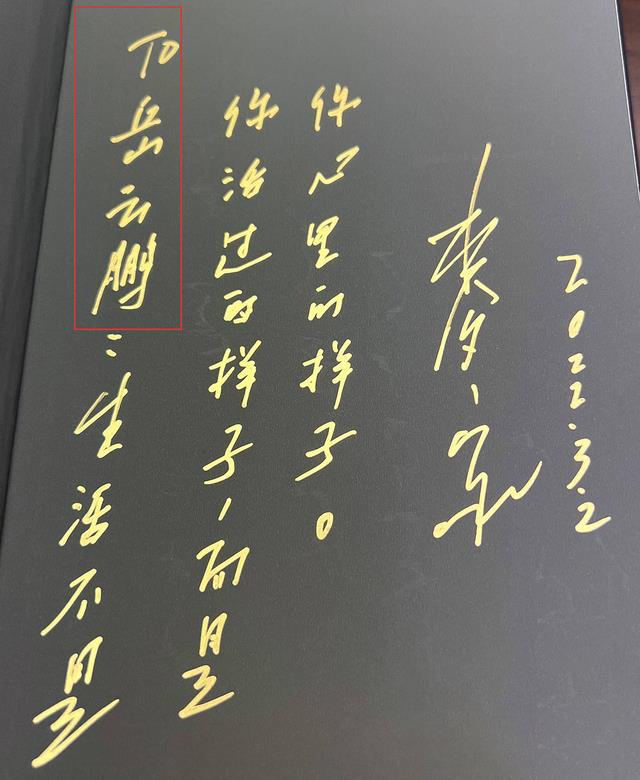 TO岳云鹏：生活不是
你活过的样子，而是
你心里的样子。
2022.3.2